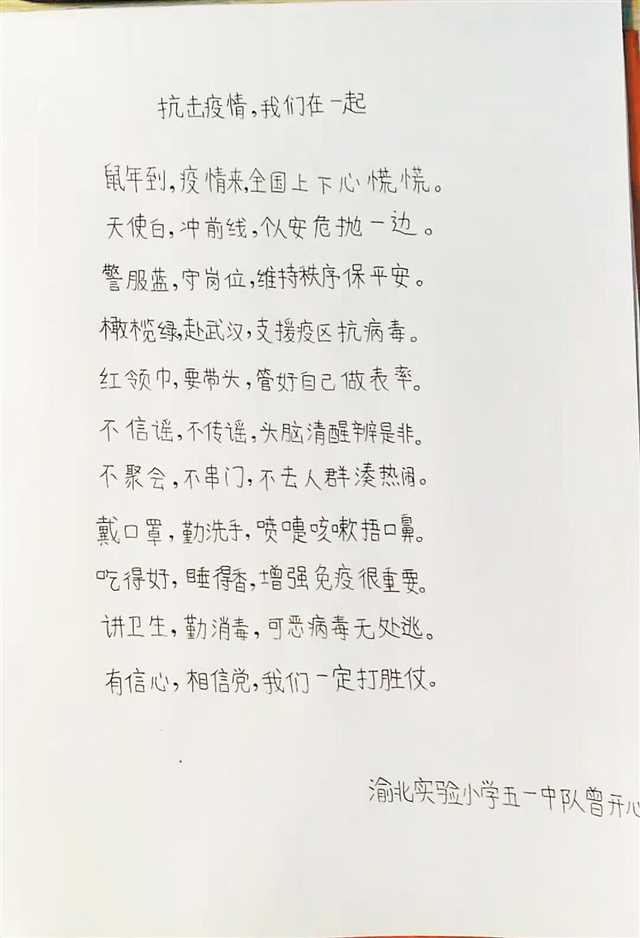 抗击疫情,我们在一起
鼠年到,疫情来,全国上下心慌慌。
天使白,冲前线,个人安危抛一边。
警服蓝,守岗位,维持秩序保平安。
橄榄绿,赴武汉,支援疫区抗病毒。
红领巾,要带头,管好自己做表率。
不信谣,不传谣,头脑清醒辨是非。
不聚会,不串门,不去人群凑热闹。
戴口罩,勤洗手,喷嚏咳嗽捂口鼻。
吃得好,睡得香,增强免疫很重要。
讲卫生,勤消毒,可恶病毒无处逃。
有信心,相信党,我们一定打胜仗。
渝北实验小学五一中队曾开心